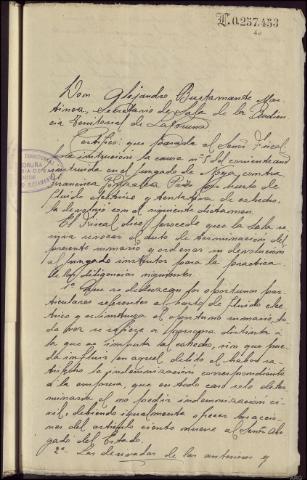 L.0.257.453
Don Alejandro Bustamante Mar
tinez, Secretario de Sala de la Audien
cia Territorial de La Coruña
Certifico: que pasada al Señor Fiscal
instrucción la causa nº 5 del corriente año
instruida en el Juzgado de contra
Francisca Pazo por hurto de
fluido eléctrico y tentativa de estafa,
la despachó con el siguiente dictamen.
El Fiscal dice: procede que la Sala se
sirva revocar el auto de terminación del
presente sumario y ordenar su devolución
al Juzgado instructor para la práctica
de las diligencias siguientes.
1ª Que se deduzcan los oportunos par
ticulares referentes al hurto de fluido eléc
trico y se instruya el oportuno sumario, to
da vez se refiere a persona distinta a
la que se imputa la estafa, sin que pue
da influir en aquel delito el haber sa
tisfecho la indemnización correspondiente
a la empresa, que en todo caso solo deter
minaría el no pedir indemnización ci
vil, debiendo igualmente ofrecer las accio
nes del artículo ciento nueve al Señor Abo
gado del Estado.
2ª Las derivadas de las anteriores y